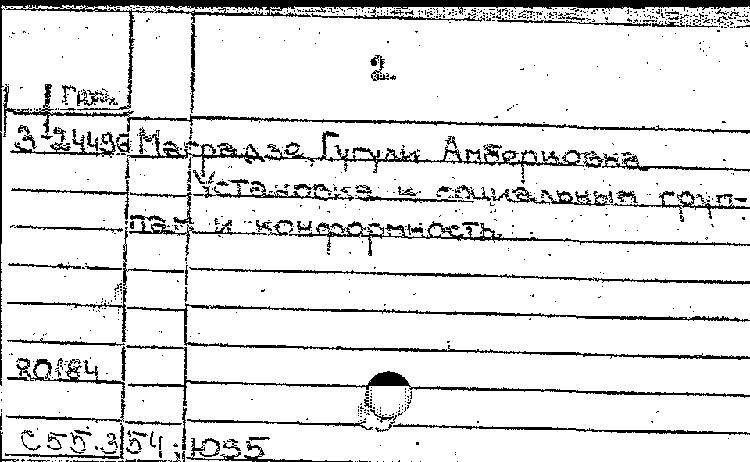 2.
3-24496 Маградзе, Гугули Амберковна
Установка к социальным груп-
пам и конформность.
80184
С55.354; Ю95